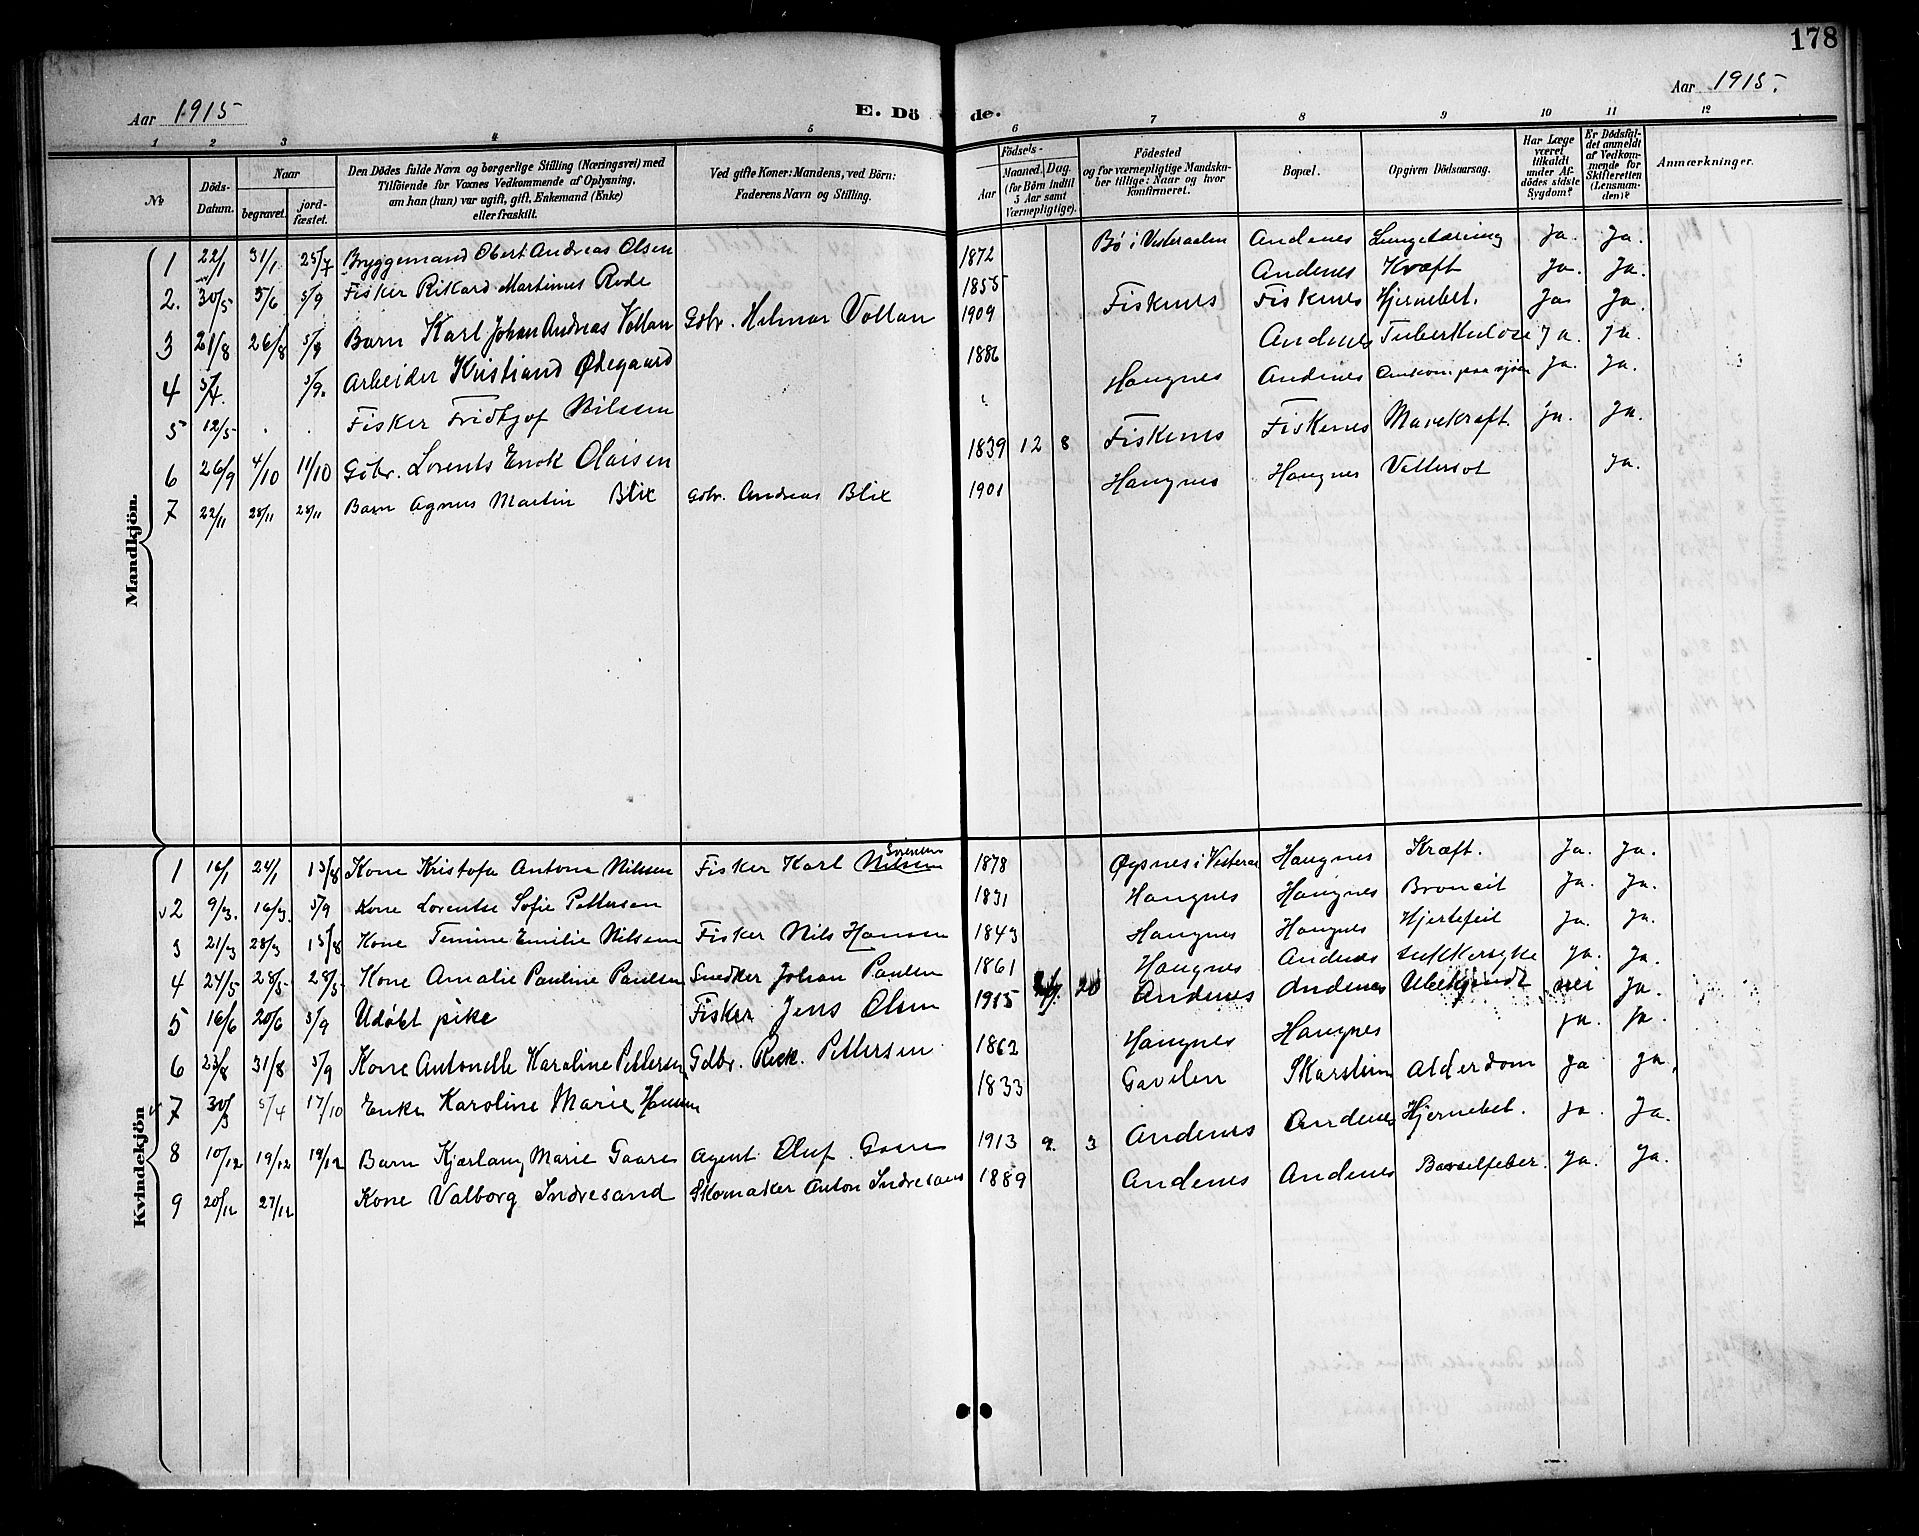 178
Aar 1915
E. Dö de.
Aar 1915.
1 2 3 4 5 6 7 8 9 10 11 12
No
Döds-Datum.
Naar
begravet.
jord-fæstet.
Den Dödes fulde Navn og borgerlige Stilling (Næringsvei) med
Tilföiende for Voxnes Vedkommende af Oplysning,
om han (hun) var ugift, gift, Enkemand (Enke)
eller fraskilt.
Ved gifte Koner: Mandens, ved Börn:
Faderens Navn og Stilling.
Födsels-
Aar
Maaned. Dag.
(for Börn indtil
5 Aar samt
Værnepligtige).
Födested
og for værnepligtige Mandska-
ber tillige: Naar og hvor
konfirmeret.
Bopæl.
Opgiven Dödsaarsag.
Har Læge
været
tilkaldt
under Af-
dödes sidste
Sygdom?
Er Dödsfal-
det anmeldt
af Vedkom-
mende for
Skifteretten
(Lensman-
den)?
Anmærkninger.
Mandkjön.
1 22/1 31/1 25/7 Bryggemand Obert Andreas Olsen 1872 Bø i Vesteraalen Andenes Lungetæring Ja. Ja.
2. 30/5 5/6 5/9 Fisker Rikard Martinus Rode 1855 Andenes Kræft Ja. Ja.
3 21/8 26/8 5/9 Barn Karl Johan Andreas Voltan Gdbr. Hilmar Voltan 1909 Fisknes Fisknes Hjernebet. Ja Ja.
4 5/4. 5/9. Arbeider Kristiand Ødegaard 1886 Andenes Tuberkulose Ja. Ja.
5 12/5 . . Fisker Fridtjof Nilsen Haugnes Andenes Omkom paa sjøen Ja. Ja.
6 26/9 4/10 11/10 Gdbr. Lorents Enok Olaisen 1839 12 8 Fiskenes Fiskenes Mavekræft. Ja. Ja.
7 22/11 28/11 28/11 Barn Agnus Martin Blix Gdbr. Andreas Blix 1901 Haugnes Haugnes Vattersot Ja.
Kvindekjön
1 16/1 24/1 15/8 Kone Kristofa Antona Nilssen Fisker Karl Nilssen Sørensen 1878 Øksnes i Vesteraa Haugnes Kræft. Ja. Ja.
2 9/3. 16/3. 5/9 Kone Lorentse Sofie Pettersen 1831 Haugnes Haugnes Broncit Ja. Ja.
3 21/3 28/3 15/8 Kone Temine Emilie Nilsen Fisker Nils Hansen 1843 Haugnes Haugnes Hjertefeil Ja. Ja.
4 24/5 28/5 28/5 Kone Amalie Pauline Paulsen Snedker Johan Paulsen 1861 Haugnes Andenes Sukkersyke Ja. Ja.
5 16/6 20/6 5/9 Udøbt pike Fisker Jens Olsen 1915 20 Andenes Andenes Ubekjendt nei Ja.
6 23/8 31/8 5/9 Kone Antonette Karoline Pettersen Gdbr. Rick. Pettersen 1862 Haugnes Haugnes Ja. Ja.
7 30/3 5/4 17/10 Enke Karoline Marie Hansen 1833 Gavelen Skarstein Alderdom Ja Ja.
8 10/12 19/12 19/12 Barn Kjærlaug Marie Gaare Agent Oluf Gaare 1913 9. 3 Andenes Andenes Hjernebet. Ja. Ja.
9 20/12 27/12 Kone Valborg Indresand Skomaker Anton Indresand 1889 Andenes Andenes Barselfeber. Ja. Ja.